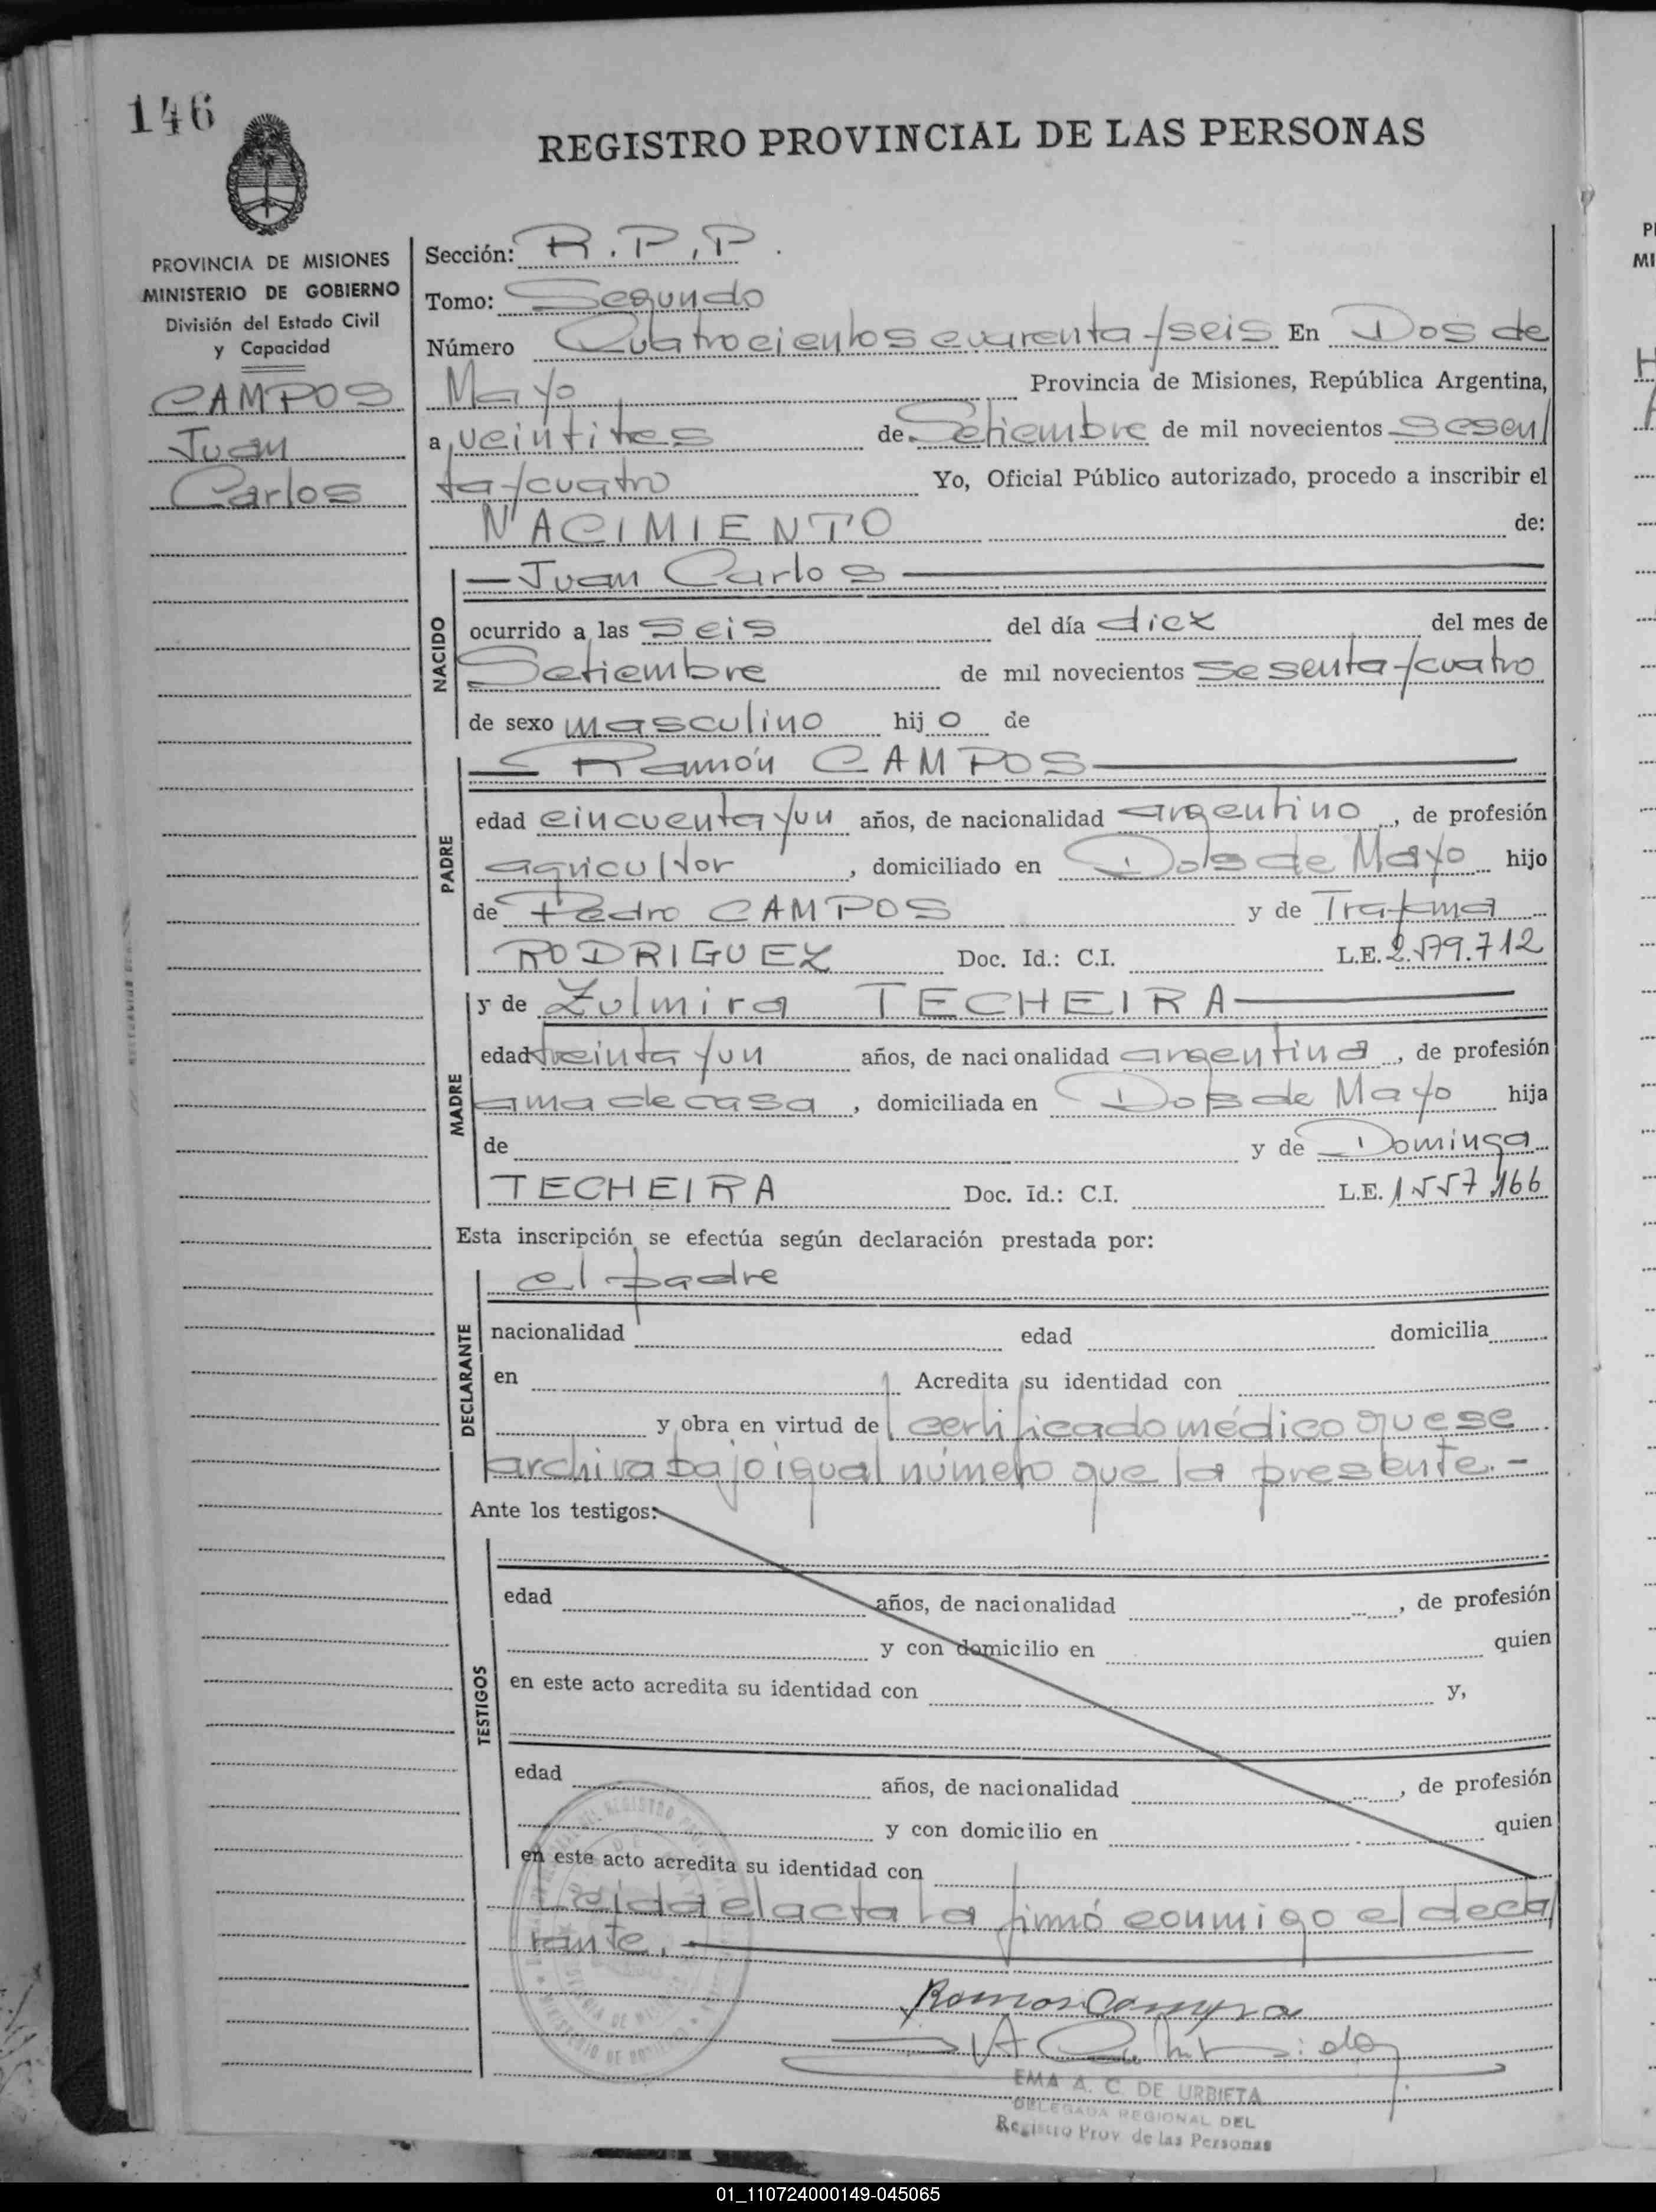 146
REGISTRO PROVINCIAL DE LAS PERSONAS
PROVINCIA DE MISIONES
MINISTERIO DE GOBIERNO
División del Estado Civil
y Capacidad
CAMPOS
Juan
Carlos
Sección: R.P.P.
Tomo: Segundo
Número Cuatrocientos cuarenta y seis En Dos de
Mayo Provincia de Misiones, República Argentina,
a veintitres de Setiembre de mil novecientos sesen/
ta y cuatro Yo, Oficial Público autorizado, procedo a inscribir el
NACIMIENTO de:
NACIDO
— Juan Carlos —
ocurrido a las seis del día diez del mes de
Setiembre de mil novecientos sesenta y cuatro
de sexo masculino hijo de
PADRE
— Ramón CAMPOS —
edad cincuenta y un años, de nacionalidad argentino, de profesión
agricultor, domiciliado en Dos de Mayo hijo
de Pedro CAMPOS y de
RODRIGUEZ Doc. Id.: C.I. L.E. 2.579.712
MADRE
y de Zulmira TECHEIRA —
edad treinta y un años, de nacionalidad argentina, de profesión
ama de casa, domiciliada en Dos de Mayo hija
de y de Dominga
TECHEIRA Doc. Id.: C.I. L.E. 1557166
Esta inscripción se efectúa según declaración prestada por:
DECLARANTE
el padre
nacionalidad edad domicilia
en Acredita su identidad con
y obra en virtud de certificado médico que se
archiva bajo igual número que la presente.-
Ante los testigos:
TESTIGOS
edad años, de nacionalidad , de profesión
y con domicilio en quien
en este acto acredita su identidad con y,
edad años, de nacionalidad , de profesión
y con domicilio en quien
en este acto acredita su identidad con
Leida el acta la firmó conmigo el decla/
rante. —
Ramon Campo
EMA A. C. DE URBIETA
DELEGADA REGIONAL DEL
Registro Prov. de las Personas
01_110724000149-045065